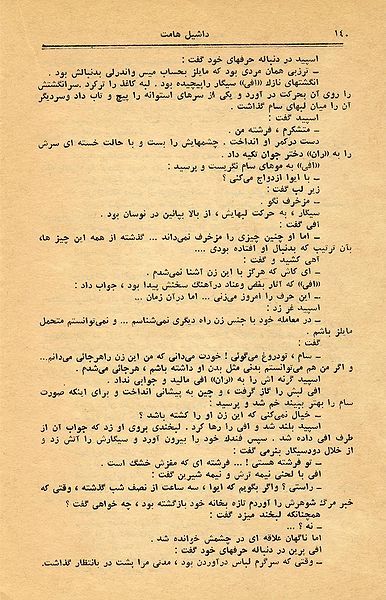 ۱۴۰
داشیل هامت
اسپید در دنباله حرفهای خود گفت :
ـ ترزبی همان مردی بود که مایلز بحساب میس واندرلی بدنبالش بود .
انگشتهای نازك «افی» سیگار راپیچیده بود . لبه کاغذ را ترکرد .سرانگشتش
را روی آن بحرکت در آورد و یکی از سرهای استوانه را پیچ و تاب داد وسردیگر
آن را میان لبهای سام گذاشت .
اسپید گفت :
ـ متشکرم ، فرشته من .
دست درکمر او انداخت . چشمهایش را بست و با حالت خسته ای سرش
را به «ران» دختر جوان تکیه داد .
«افی» به موهای سام نگریست و پرسید :
ـ با ایوا ازدواج می‌کنی ؟
زیر لب گفت :
ـ مزخرف نگو .
سیگار ، به حرکت لبهایش ، از بالا بپائین در نوسان بود .
افی گفت :
ـ اما او چنین چیزی را مزخرف نمی‌داند ... گذشته از همه این چیز ها،
بآن ترتیب که بدنبال او افتاده بودی ....
آهی کشید و گفت :
ـ ای کاش که هرگز با این زن آشنا نمی‌شدم .
«افی» که آثار بغض وعناد درآهنگ سخنش پیدا بود ، جواب داد :
ـ این حرف را امروز می‌زنی ... اما درآن زمان ...
اسپید غر زد :
ـ در معامله خود با جنس زن راه دیگری نمی‌شناسم ... و نمی‌توانستم متحمل
مایلز باشم .
گفت :
ـ سام ، تودروغ می‌گوئی ! خودت می‌دانی که من این زن راهرجائی می‌دانم...
و اگر من هم می‌توانستم بدنی مثل بدن او داشته باشم ، هرجائی می‌شدم .
اسپید گونه اش را به «ران» افی مالید و جوابی نداد .
افی لبش را گاز گرفت ، و چین به پیشانی انداخت و برای اینکه صورت
سام را بهتر ببیند خم شد و پرسید :
ـ خیال نمی‌کنی که این زن او را کشته باشد ؟
اسپید بلند شد و افی را رها کرد . لبخندی بروی او زد که جواب آن از
طرف افی داده شد . سپس فندك خود را بیرون آورد و سیگارش را آتش زد و
از خلال دودسیگار بنرمی گفت :
ـ تو فرشته هستی ! ... فرشته ای که مغزش خشگ است .
افی با لحنی نیمه ترش و نیمه شیرین گفت :
ـ راستی ؟ واگر بگویم که ایوا ، سه ساعت از نصف شب گذشته ، وقتی که
خبر مرگ شوهرش را آوردم تازه بخانه خود بازگشته بود ، چه خواهی گفت ؟
همچنانکه لبخند میزد گفت :
ـ نه ؟ ...
اما ناگهان علاقه ای در چشمش خوانده شد .
افی برین در دنباله حرفهای خود گفت :
ـ وقتی که سرگرم لباس درآوردن بود ، مدتی مرا پشت در بانتظار گذاشت.